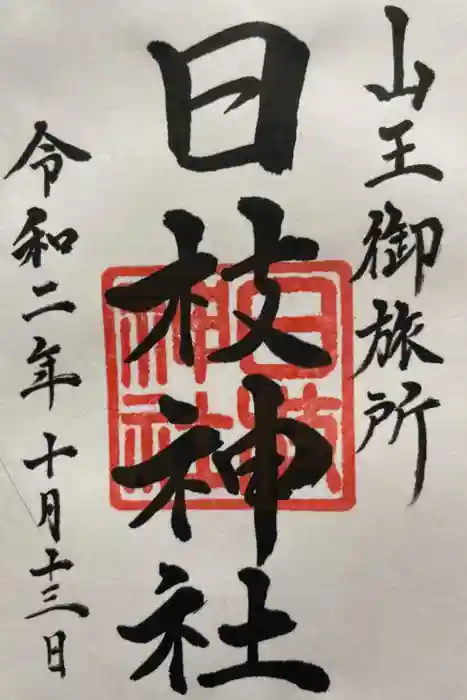 山王御旅所
日枝神社
日枝神社
令和二年十月十三日